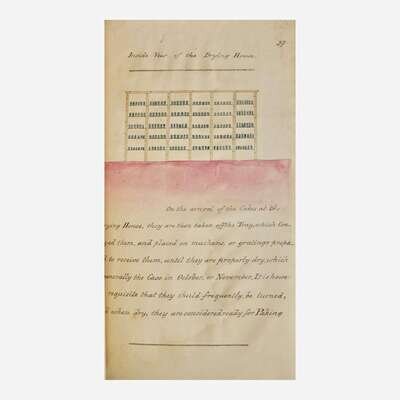 37
Inside View of the Drying House.
On the arrival of the Cakes at the
rying House, they are then taken off the Tray, which Con-
yed them, and placed on machans, or gratings prepa-
to receive them, until they are properly dry, which
enerally the Case in October, or November. It is howe-
requisite that they should frequently, be turned,
when dry, they are considered ready for Paking